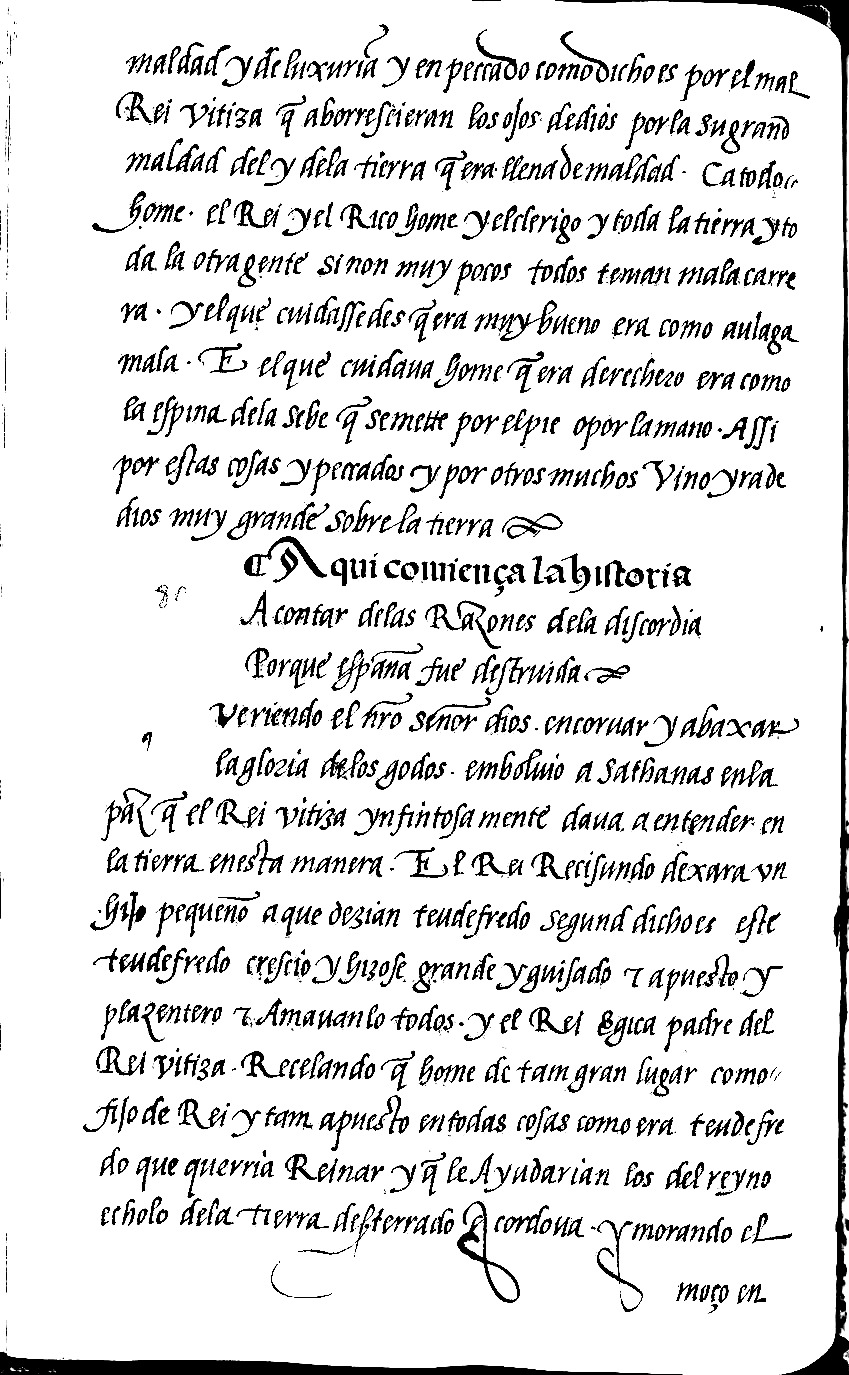 maldad y de luxuria y en peccado como dicho es por el mal
Rei vitiza q̄ aborrescieran los ojos de dios por la su grand
maldad del y dela tierra q̄ era llena de maldad. Ca todo
home. el Rei y el Rico home y el clerigo y toda la tierra y to
da la otra gente si non muy pocos todos tenian mala carre
ra. y el que cuidassedes q̄ era muy bueno era como aulaga
mala. E el que cuidaua home q̄ era derechero era como
la espina dela sebe q̄ se mette por el pie o por la mano. Assi
por estas cosas y peccados y por otros muchos Vino yra de
dios muy grande sobre la tierra
¶ Aqui comiença la historia
A contar delas Razones dela discordia
Porque españa fue destruida
Veriendo el nr̄o señor dios. encoruar y abaxar
la gloria de los godos. emboluio a Sathanas en la
paz q̄ el Rei vitiza ynfintosa mente daua a entender en
la tierra en esta manera. El Rei Recisundo dexara vn
hijo pequeño a que dezian teudefredo segund dicho es este
teudefredo crescio y hizose grande y guisado τ apuesto y
plazentero τ Amauan lo todos. y el Rei Egica padre del
Rei vitiza. Recelando q̄ home de tam gran lugar como
fijo de Rei y tam apuesto en todas cosas como era teudefre
do que querria Reinar y q̄ le Ayudarian los del reyno
echolo dela tierra desterrado A cordoua. y morando el
moço en